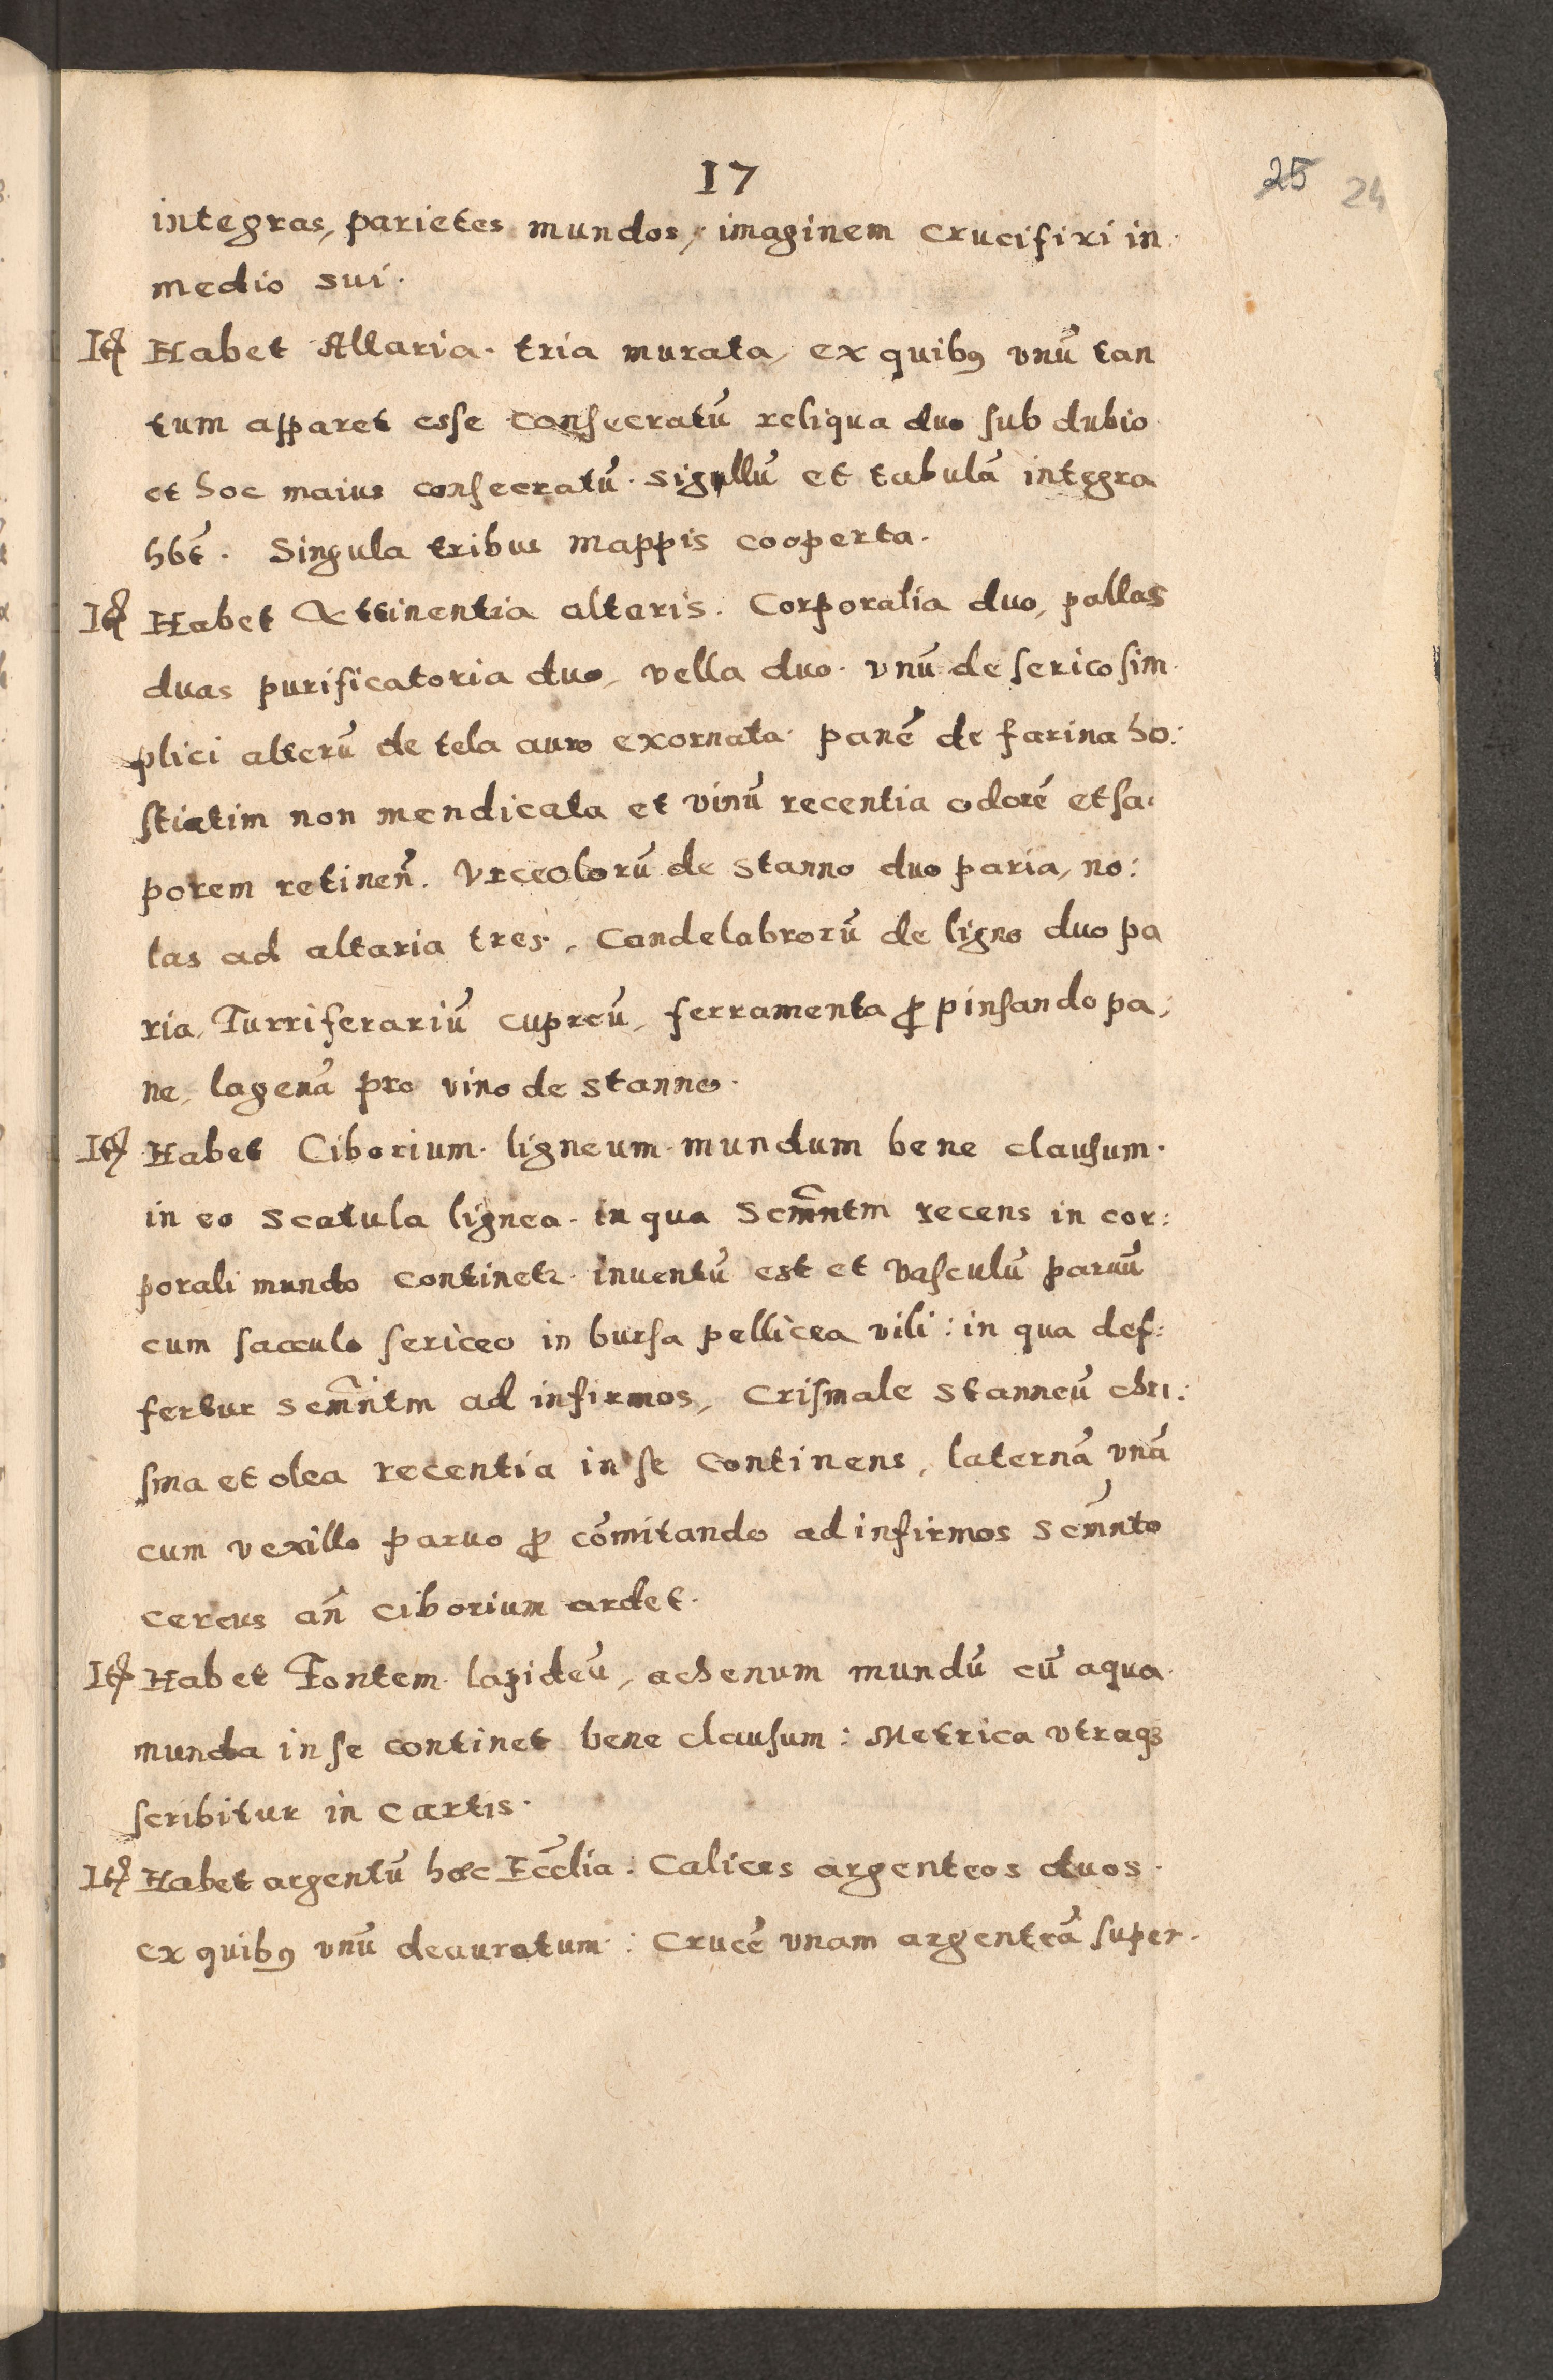 17
25 24
integras, parietes mundos, imaginem crucifixi in
medio sui.
Itē Habet Altaria tria murata, ex quibꝰ vnū tan
tum apparet esse consecratū reliqua duo sub dubio
et hoc maius consecratū sigillū et tabulā integra
hbt̄. Singula tribus mappis cooperta.
Itē Habet Attinentia altaris. Corporalia duo, pallas
duas purificatoria duo, vella duo. vnū de serico sim
plici alterū de tela auro exornata. panē de farina ho:
stiatim non mendicata et vinū recentia odorē et sa:
porem retineñ. Vrceolorū de stanno duo paria, no:
las ad altaria tres, Candelabrorū de ligno duo pa
ria, Turriferariū cupreū, ferramenta ꝓ pinsando pa:
ne, lagenā pro vino de stanno.
Itē Habet Ciborium ligneum mundum bene clausum.
in eo scatula lignea in qua Scm̄ntm recens in cor:
porali mundo continetr inuentū est et vasculū paruū
cum sacculo sericeo in bursa pellicea vili: in qua def:
fertur scm̄ntm ad infirmos, Crismale stanneū chri:
sma et olea recentia in se continens, laternā vnā
cum vexillo paruo ꝓ cōmitando ad infirmos scm̄nto
cereus añ ciborium ardet.
Itē Habet Fontem lapideū, achenum mundū cū aqua
munda in se continet bene clausum: Metrica vtraqꝫ
scribitur in cartis.
Itē Habet argentū hæc Eccl̄ia: Calices argenteos duos.
ex quibꝰ vnū deauratum: Crucē vnam argenteā super.